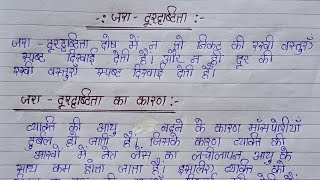 -: जरा - दूरदृष्टिता :-
जरा - दूरदृष्टिता दोष में न तो निकट की रखी वस्तुएँ
स्पष्ट दिखाई देती है। और न ही दूर की
रखी वस्तुएँ स्पष्ट दिखाई देती है।
जरा - दूरदृष्टिता का कारण :-
व्यक्ति की आयु बढ़ने के कारण माँसपेशीयाँ
दुर्बल हो जाती है। जिसके कारण व्यक्ति की
आँखों में नेत्र लेंस का लचीलापन आयु के
साथ कम होता जाता है। इसलिए व्यक्ति को